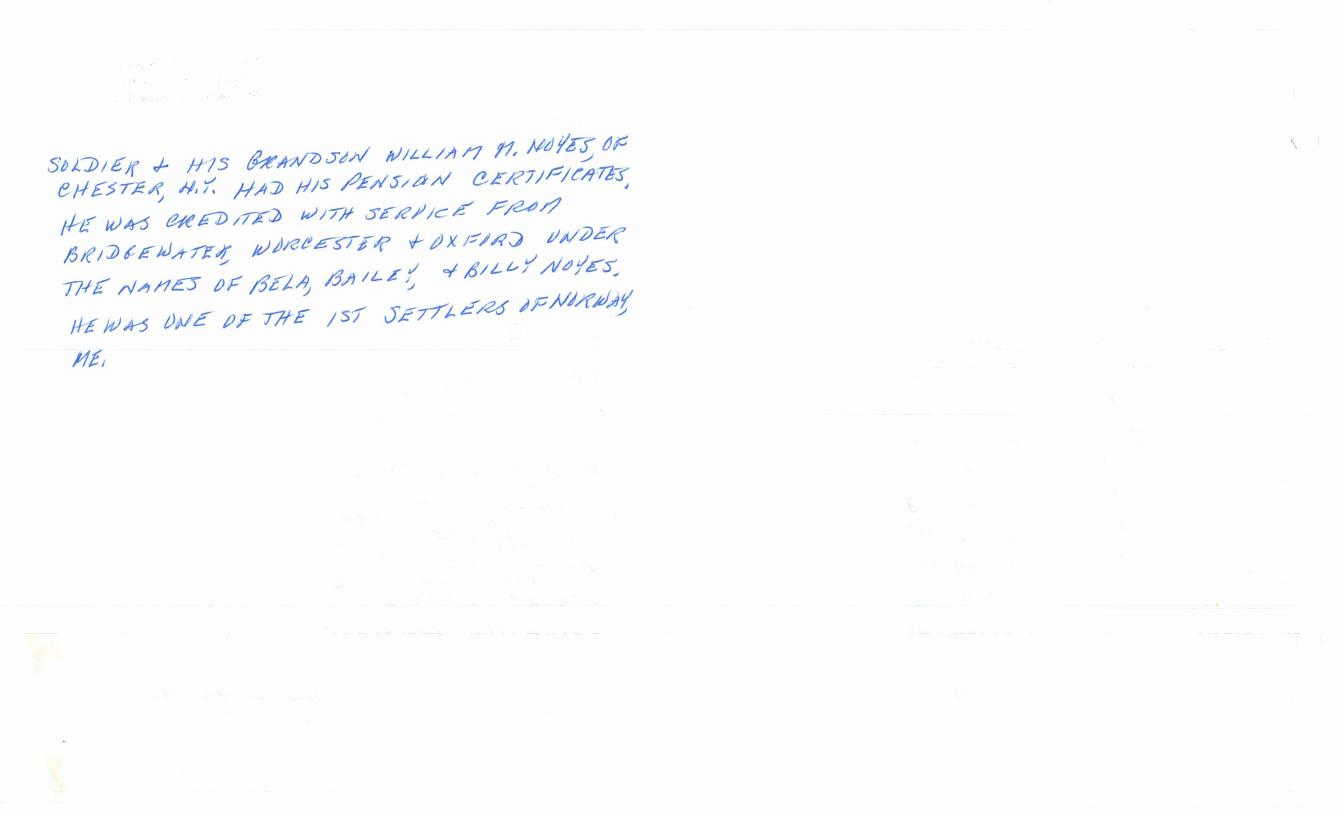 SOLDIER & HIS GRANDSON WILLIAM M. NOYES, OF
CHESTER, N.Y. HAD HIS PENSION CERTIFICATES.
HE WAS CREDITED WITH SERVICE FROM
BRIDGEWATER, WORCESTER & OXFORD UNDER
THE NAMES OF BELA, BAILEY, & BILLY NOYES.
HE WAS ONE OF THE 1ST SETTLERS OF NORWAY,
ME.